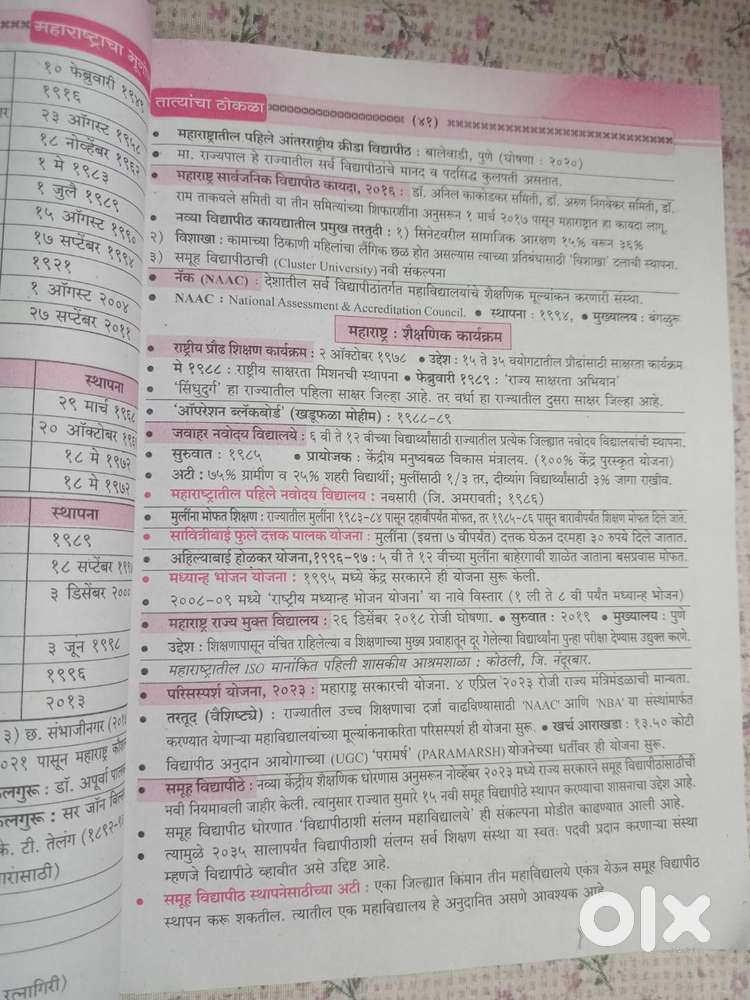 महाराष्ट्राचा
१० फेब्रुवारी १९४९
१९१६
२३ ऑगस्ट १९५८
१८ नोव्हेंबर १९६२
१ मे १९८३
१ जुलै १९८९
१५ ऑगस्ट १९९०
१७ सप्टेंबर १९९४
१९२१
१ ऑगस्ट २००४
२७ सप्टेंबर २०११
स्थापना
२९ मार्च १९६८
२० ऑक्टोबर
१८ मे १९७२
१८ मे १९७२
स्थापना
१९८९
१८ सप्टेंबर
३ डिसेंबर
३ जून १९९८
१९९६
२०१३
३) छ. संभाजीनगर
०२१ पासून महाराष्ट्र
लगुरू : डॉ. अपूर्वा
लगुरू : सर जॉन
के. टी. तेलंग (१८९२-
ारांसाठी)
रत्नागिरी)
तात्यांचा ठोकळा (४१)
• महाराष्ट्रातील पहिले आंतरराष्ट्रीय क्रीडा विद्यापीठ : बालेवाडी, पुणे (घोषणा : २०२०)
• मा. राज्यपाल हे राज्यातील सर्व विद्यापीठांचे मानद व पदसिद्ध कुलपती असतात.
• महाराष्ट्र सार्वजनिक विद्यापीठ कायदा, २०१६ : डॉ. अनिल काकोडकर समिती, डॉ. अरुण निगवेकर समिती, डॉ.
राम ताकवले समिती या तीन समित्यांच्या शिफारशींना अनुसरून १ मार्च २०१७ पासून महाराष्ट्रात हा कायदा लागू.
• नव्या विद्यापीठ कायद्यातील प्रमुख तरतुदी : १) सिनेटवरील सामाजिक आरक्षण १५% वरून ३६%
२) विशाखा : कामाच्या ठिकाणी महिलांचा लैंगिक छळ होत असल्यास त्याच्या प्रतिबंधासाठी 'विशाखा' दलाची स्थापना.
३) समूह विद्यापीठाची (Cluster University) नवी संकल्पना
• नॅक (NAAC) : देशातील सर्व विद्यापीठांतर्गत महाविद्यालयांचे शैक्षणिक मूल्यांकन करणारी संस्था.
• NAAC : National Assessment & Accreditation Council. • स्थापना : १९९४, • मुख्यालय : बंगळुरू
महाराष्ट्र : शैक्षणिक कार्यक्रम
• राष्ट्रीय प्रौढ शिक्षण कार्यक्रम : २ ऑक्टोबर १९७८ • उद्देश : १५ ते ३५ वयोगटातील प्रौढांसाठी साक्षरता कार्यक्रम
• मे १९८८ : राष्ट्रीय साक्षरता मिशनची स्थापना • फेब्रुवारी १९८९ : 'राज्य साक्षरता अभियान'
• 'सिंधुदुर्ग' हा राज्यातील पहिला साक्षर जिल्हा आहे. तर वर्धा हा राज्यातील दुसरा साक्षर जिल्हा आहे.
• 'ऑपरेशन ब्लॅकबोर्ड' (खडूफळा मोहीम) : १९८८-८९
• जवाहर नवोदय विद्यालये : ६ वी ते १२ वीच्या विद्यार्थ्यांसाठी राज्यातील प्रत्येक जिल्ह्यात नवोदय विद्यालयांची स्थापना.
• सुरुवात : १९८५ • प्रायोजक : केंद्रीय मनुष्यबळ विकास मंत्रालय. (१००% केंद्र पुरस्कृत योजना)
• अटी : ७५% ग्रामीण व २५% शहरी विद्यार्थी; मुलींसाठी १/३ तर, दीव्यांग विद्यार्थ्यांसाठी ३% जागा राखीव.
• महाराष्ट्रातील पहिले नवोदय विद्यालय : नवसारी (जि. अमरावती; १९८६)
• मुलींना मोफत शिक्षण : राज्यातील मुलींना १९८३-८४ पासून दहावीपर्यंत मोफत, तर १९८५-८६ पासून बारावीपर्यंत शिक्षण मोफत दिले जाते.
• सावित्रीबाई फुले दत्तक पालक योजना : मुलींना (इयत्ता ७ वीपर्यंत) दत्तक घेऊन दरमहा ३० रुपये दिले जातात.
• अहिल्याबाई होळकर योजना,१९९६-९७ : ५ वी ते १२ वीच्या मुलींना बाहेरगावी शाळेत जाताना बसप्रवास मोफत.
• मध्यान्ह भोजन योजना : १९९५ मध्ये केंद्र सरकारने ही योजना सुरू केली.
• २००८-०९ मध्ये 'राष्ट्रीय मध्यान्ह भोजन योजना' या नावे विस्तार (१ ली ते ८ वी पर्यंत मध्यान्ह भोजन)
• महाराष्ट्र राज्य मुक्त विद्यालय : २६ डिसेंबर २०१८ रोजी घोषणा. • सुरुवात : २०१९ • मुख्यालय : पुणे
• उद्देश : शिक्षणापासून वंचित राहिलेल्या व शिक्षणाच्या मुख्य प्रवाहातून दूर गेलेल्या विद्यार्थ्यांना पुन्हा परीक्षा देण्यास उद्युक्त करणे.
• महाराष्ट्रातील ISO मानांकित पहिली शासकीय आश्रमशाळा : कोठली, जि. नंदूरबार.
• परिसस्पर्श योजना, २०२३ : महाराष्ट्र सरकारची योजना. ४ एप्रिल २०२३ रोजी राज्य मंत्रिमंडळाची मान्यता.
• तरतूद (वैशिष्ट्ये) : राज्यातील उच्च शिक्षणाचा दर्जा वाढविण्यासाठी 'NAAC' आणि 'NBA' या संस्थांमार्फत
करण्यात येणाऱ्या महाविद्यालयांच्या मूल्यांकनाकरिता परिसस्पर्श ही योजना सुरू. • खर्च आराखडा : १३.५० कोटी
• विद्यापीठ अनुदान आयोगाच्या (UGC) 'परामर्ष' (PARAMARSH) योजनेच्या धर्तीवर ही योजना सुरू.
• समूह विद्यापीठे : नव्या केंद्रीय शैक्षणिक धोरणास अनुसरून नोव्हेंबर २०२३ मध्ये राज्य सरकारने समूह विद्यापीठासाठीची
नवी नियमावली जाहीर केली. त्यानुसार राज्यात सुमारे १५ नवी समूह विद्यापीठे स्थापन करण्याचा शासनाचा उद्देश आहे.
• समूह विद्यापीठ धोरणात 'विद्यापीठाशी संलग्न महाविद्यालये' ही संकल्पना मोडीत काढण्यात आली आहे.
• त्यामुळे २०३५ सालापर्यंत विद्यापीठाशी संलग्न सर्व शिक्षण संस्था या स्वतः पदवी प्रदान करणाऱ्या संस्था
म्हणजे विद्यापीठे व्हावीत असे उद्दिष्ट आहे.
• समूह विद्यापीठ स्थापनेसाठीच्या अटी : एका जिल्ह्यात किमान तीन महाविद्यालये एकत्र येऊन समूह विद्यापीठ
स्थापन करू शकतील. त्यातील एक महाविद्यालय हे अनुदानित असणे आवश्यक आहे.
olx